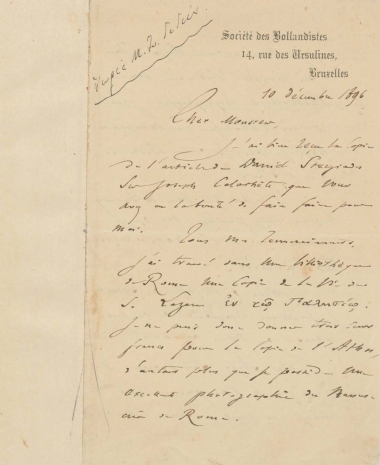 Société des Bollandistes
14, rue des Ursulines,
Bruxelles
10 décembre 1896
Cher Monsieur,
J'ai bien reçu la copie
de l'article de Daniel
sur Joseph que vous
avez eu la bonté de faire faire pour
moi.
Tous mes remerciements.
J'ai trouvé dans une bibliothèque
de Rome une copie de la Vie de
S. Lazare
Je ne puis donc donner
francs pour la copie de l'Athos,
d'autant plus que je possède une
excellente photographie du
de Rome.